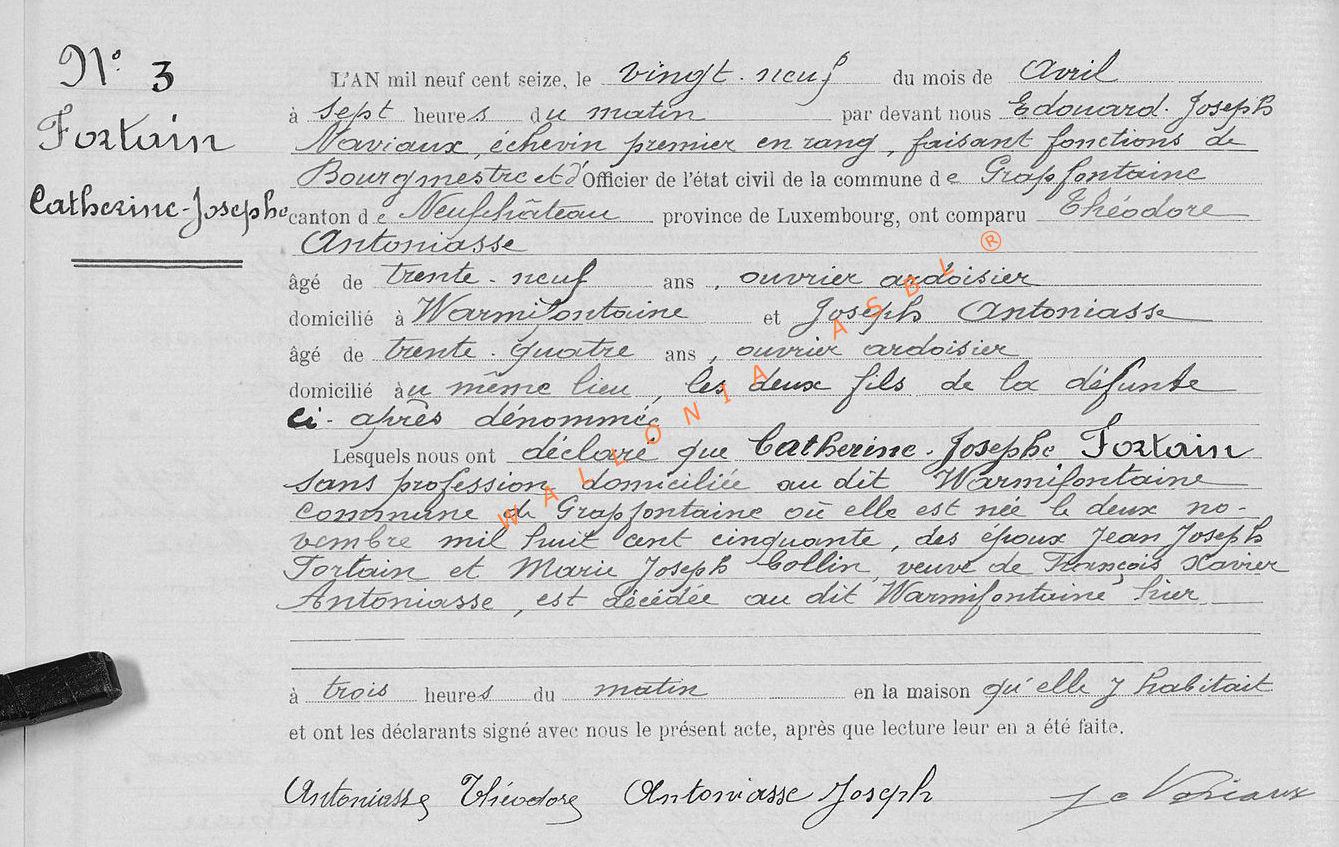 N° 3
Fortain
Catherine-Josephe
L'AN mil neuf cent seize, le vingt-neuf du mois de Avril
à sept heures du matin par devant nous Edouard-Joseph
Naviaux, échevin premier en rang, faisant fonctions de
Bourgmestre et d'Officier de l'état civil de la commune de Grapfontaine
canton de Neufchâteau province de Luxembourg, ont comparu Théodore
Antoniasse
âgé de trente-neuf ans, ouvrier ardoisier
domicilié à Warmifontaine et Joseph Antoniasse
âgé de trente-quatre ans, ouvrier ardoisier
domicilié au même lieu, les deux fils de la défunte
ci-après dénommée
Lesquels nous ont déclaré que Catherine-Josephe Fortain
sans profession domiciliée au dit Warmifontaine
commune de Grapfontaine où elle est née le deux no-
vembre mil huit cent cinquante, des époux Jean Joseph
Fortain et Marie Joseph Collin, veuve de François Xavier
Antoniasse, est décédée au dit Warmifontaine hier
à trois heures du matin en la maison qu'elle y habitait
et ont les déclarants signé avec nous le présent acte, après que lecture leur en a été faite.
Antoniasse Théodore Antoniasse Joseph Naviaux
WALLONIA ASBL ®